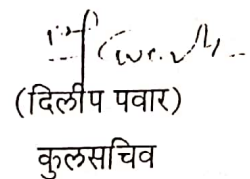 (दिलीप पवार)
कुलसचिव